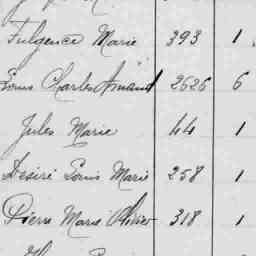 Fulgence Marie 393 1
Louis Charles Armand 2626 6
Jules Marie 44 1
Désiré Louis Marie 258 1
Pierre Marie Olivier 318 1